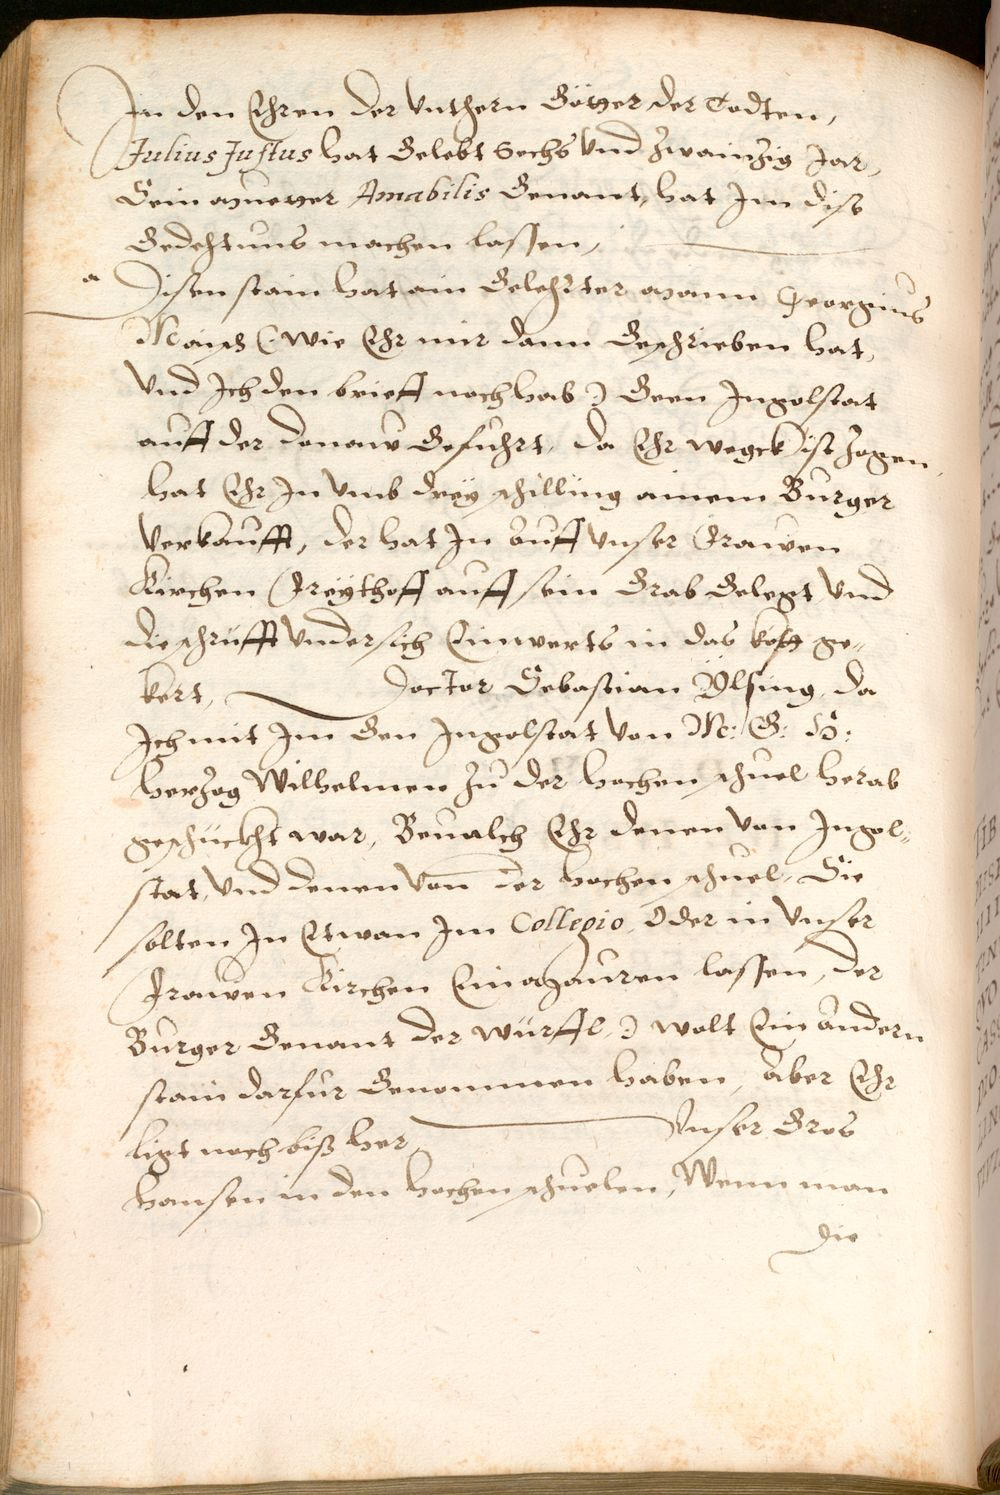 In den Ehren der Vnthern Götter der Todten,
Julius Justus hat Gelebt Sechs Vnd Zwainzig Jar,
Sein Mueter Amabilis Genant, hat Im diß
Gedechtnus machen lassen,
a Disen stain hat ain Gelehrter Mann Georgius
(Wie Ehr mir dann Geschrieben hat,
Vnd Ich den brieff noch hab) Geen Ingolstat
auff der donaw Gefuhrt, da Ehr wegck ist Zogen,
hat Ehr In vmb drey schilling ainem Burger
Verkaufft, der hat In auff vnser Frawen
Kirchen Freythoff auff sein Grab Gelegt Vnd
die schrifft Vndersich Einwerts in das koth ge-
kert, Doctor Sebastian Ylsing, da
Ich mit Im Gen Ingolstat von M: G: H:
Herzog Wilhelmen Zu der hochen schuel herab
geschückht war, Beualch Ehr denen von Ingol-
stat, Vnd denen von der hochen schuel, Sie
solten In Etwan Im Collegio, Oder in Vnser
Frawen Kirchen Einmauren lassen, der
Burger Genant der würffl) wolt Ein andern
stain darfur Genommen haben, aber Ehr
ligt noch biß her, Vnser Gros
hansen in den hochen schuelen, Wenn man
die